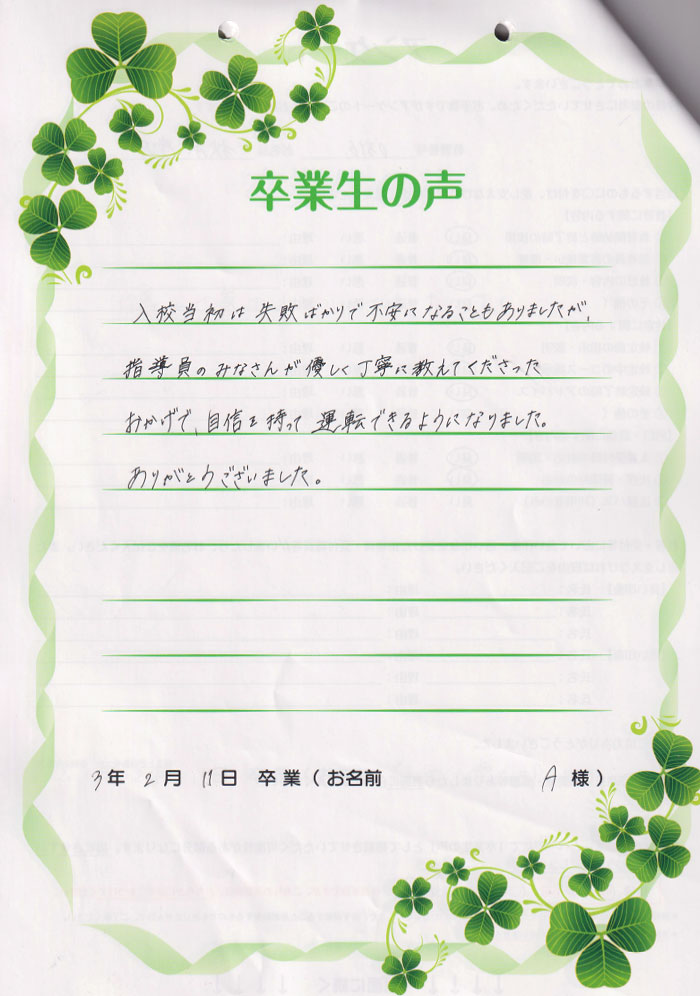 卒業生の声
入校当初は失敗ばかりで不安になることもありましたが、
指導員のみなさんが優しく丁寧に教えてくださった
おかげで、自信を持って運転できるようになりました。
ありがとうございました。
3年 2月 11日 卒業(お名前 A 様)